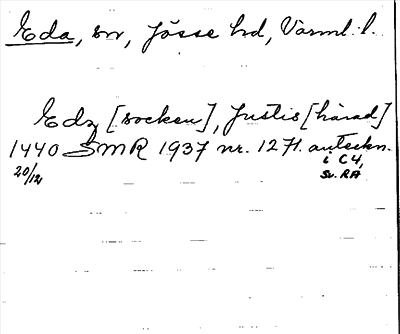 Eda, sn, Jösse hd, Värml. l.
Edz [socken], Justis [härad]
1440 SMR 1937 nr. 1271. anteckn.
20/12 i C4,
Sv. RA